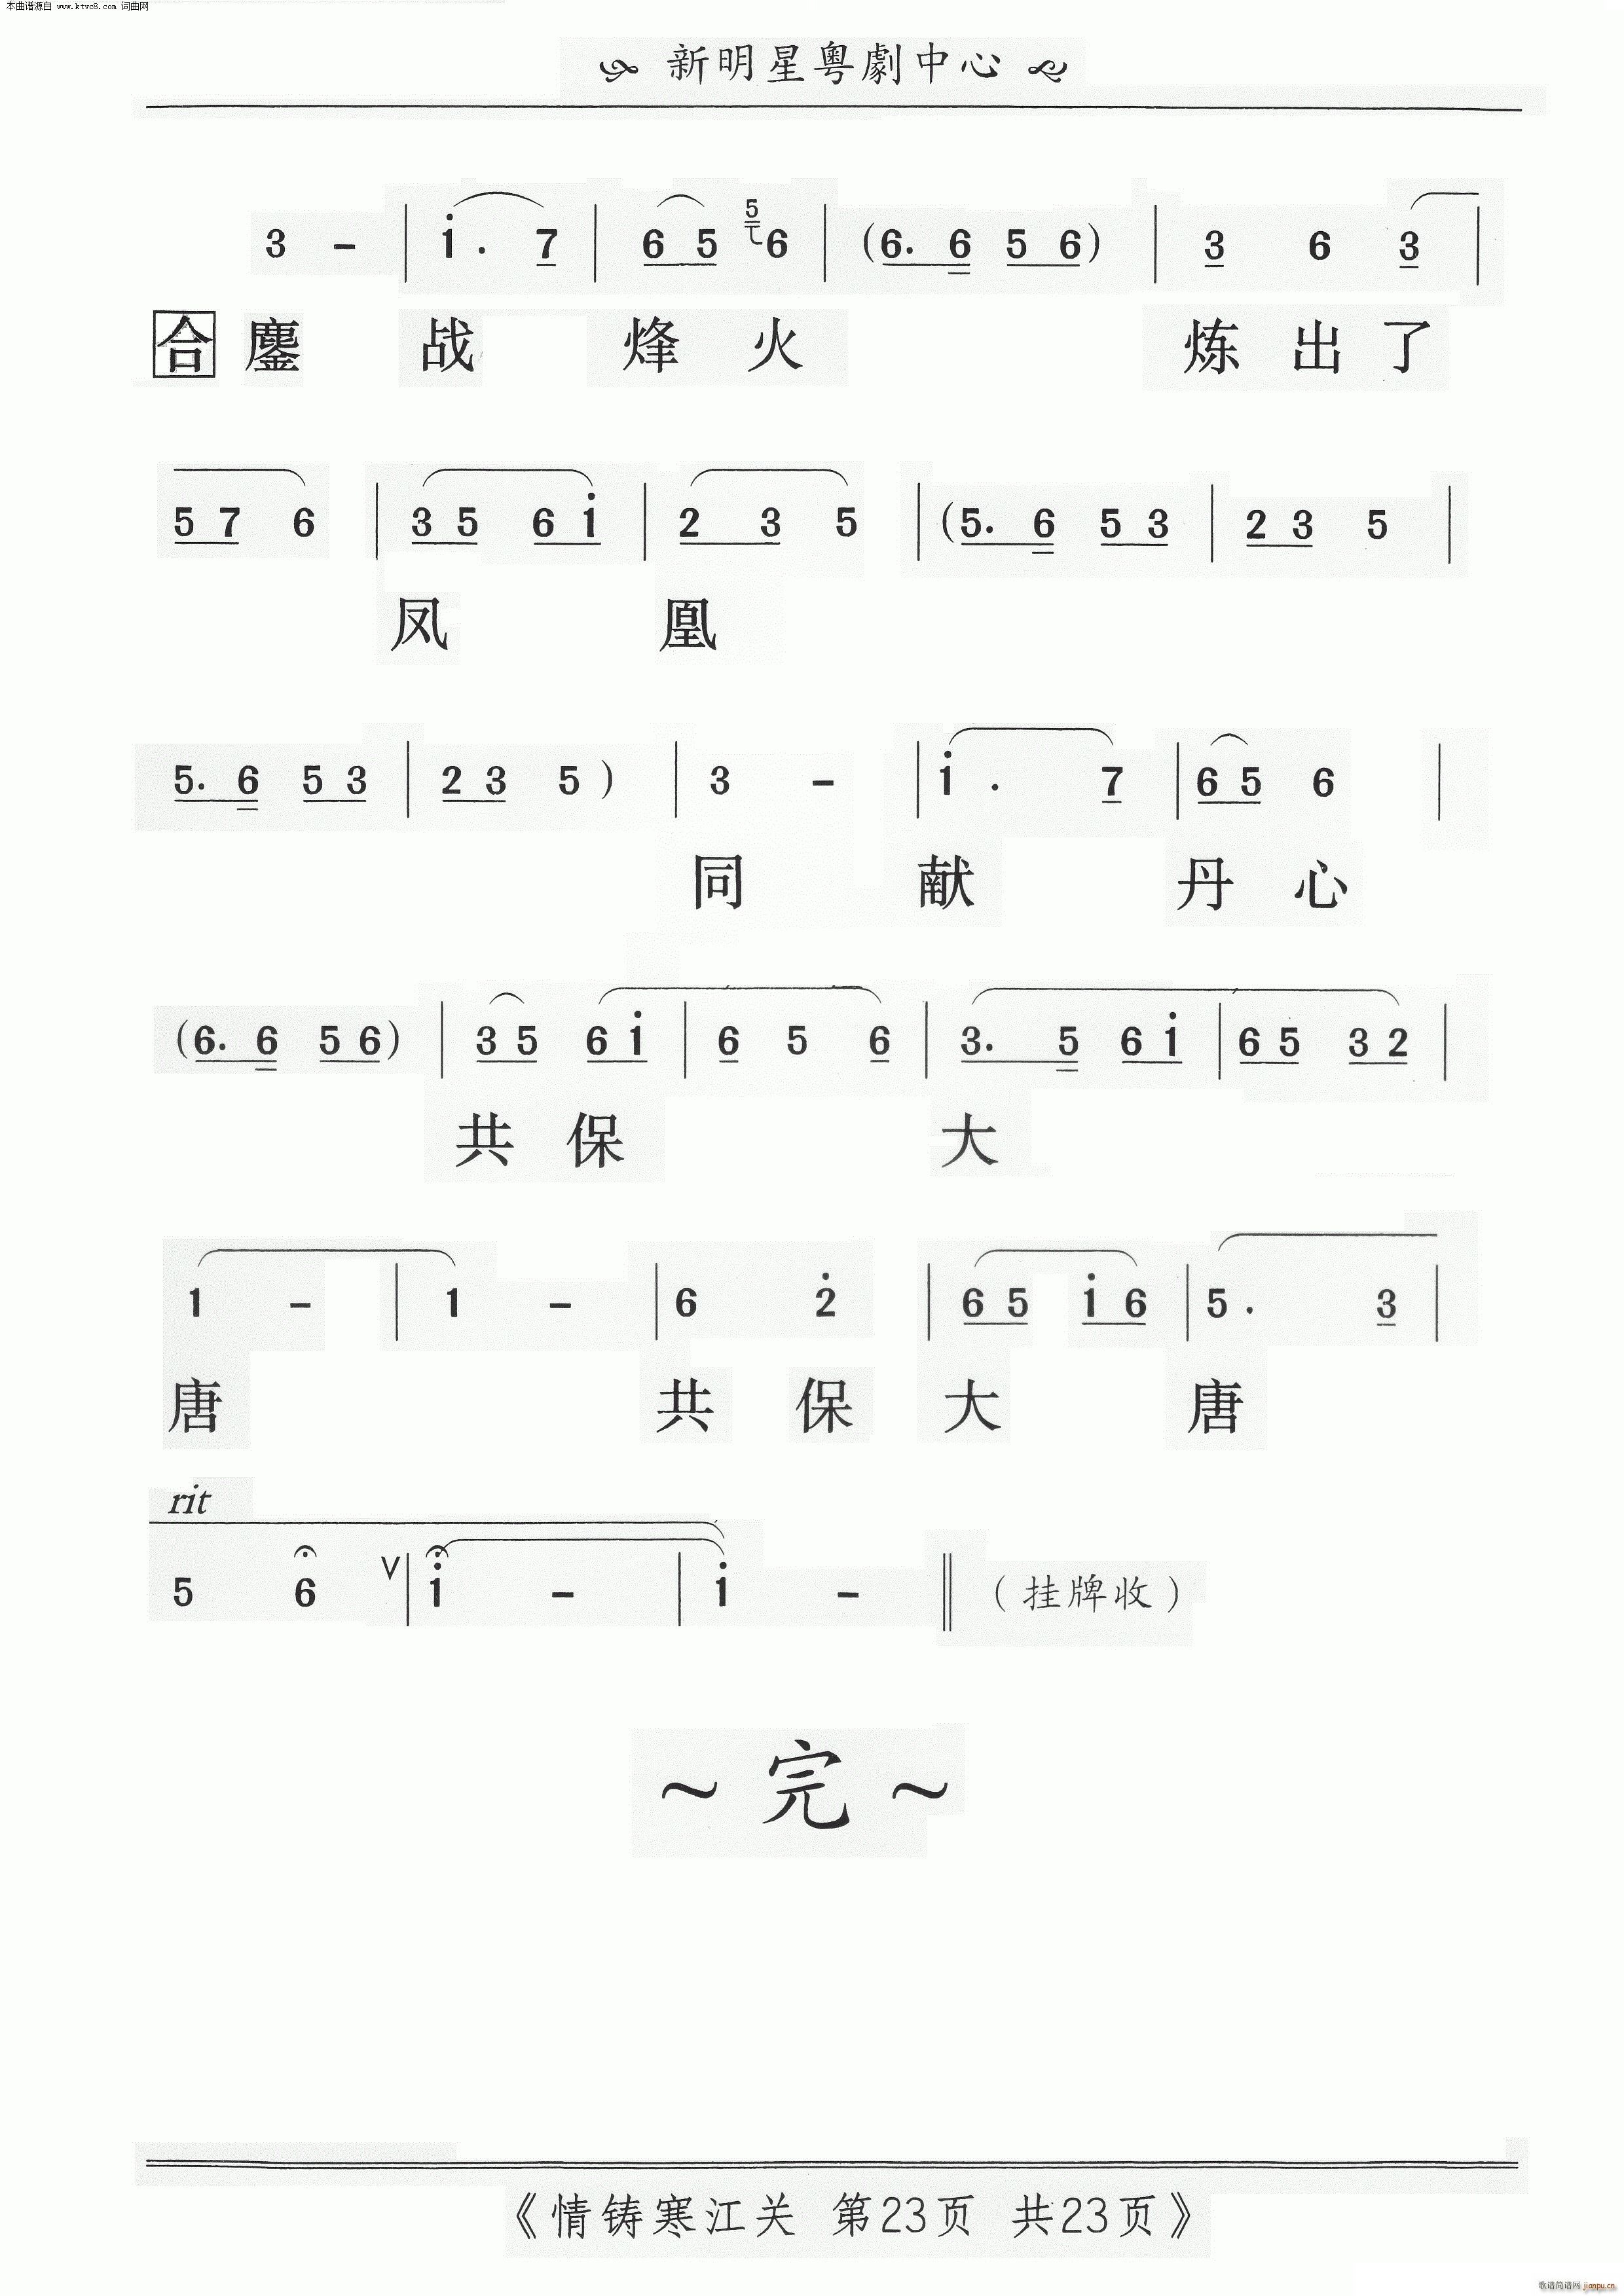 本曲谱源自 www.ktvc8.com 词曲网
新明星粤劇中心
3 - | i . 7 | 6 5 5 6 | (6. 6 5 6) | 3 6 3 |
合 鏖 战 烽 火 炼 出 了
5 7 6 | 3 5 6 i | 2 3 5 | (5. 6 5 3 | 2 3 5 |
凤 凰
5. 6 5 3 | 2 3 5 ) | 3 - | i . 7 | 6 5 6 |
同 献 丹 心
(6. 6 5 6) | 3 5 6 i | 6 5 6 | 3. 5 6 i | 6 5 3 2 |
共 保 大
1 - | 1 - | 6 2̇ | 6 5 i 6 | 5 . 3 |
唐 共 保 大 唐
rit
5 6 V | i - | i - ‖ （挂牌收）
~ 完 ~
《情铸寒江关 第23页 共23页》
歌谱简谱网 jianpu.cn